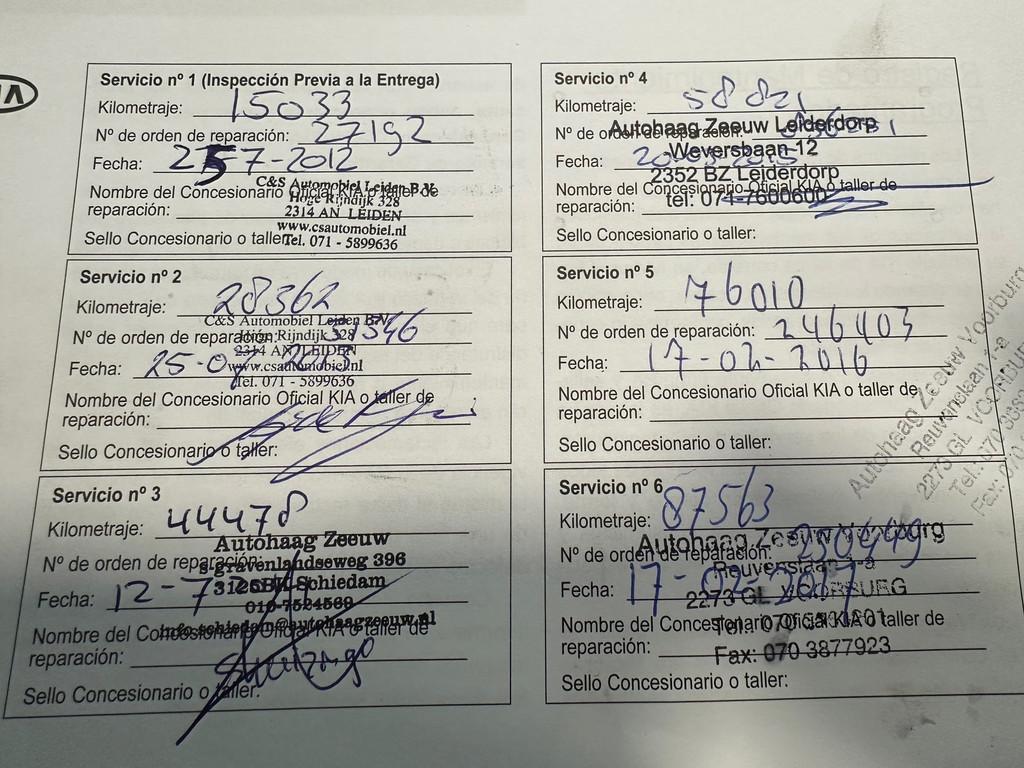 Servicio nº 1 (Inspección Previa a la Entrega)
Kilometraje: 15033
Nº de orden de reparación: 27192
Fecha: 25-7-2012
Nombre del Concesionario Oficial KIA o taller de
reparación:
C&S Automobiel Leiden B.V.
Hoge Rijndijk 328
2314 AN LEIDEN
www.csautomobiel.nl
Tel. 071 - 5899636
Sello Concesionario o taller:
Servicio nº 2
Kilometraje: 28362
Nº de orden de reparación:
Fecha: 25-
C&S Automobiel Leiden B.V.
Hoge Rijndijk 328
2314 AN LEIDEN
www.csautomobiel.nl
Tel. 071 - 5899636
Nombre del Concesionario Oficial KIA o taller de
reparación:
Sello Concesionario o taller:
Servicio nº 3
Kilometraje: 44478
Nº de orden de reparación:
Fecha: 12-7-
Autohaag Zeeuw
s-gravenlandseweg 396
Schiedam
info.schiedam@autohaagzeeuw.nl
Nombre del Concesionario Oficial KIA o taller de
reparación:
Sello Concesionario o taller:
Servicio nº 4
Kilometraje: 58821
Nº de orden de reparación:
Fecha:
Autohaag Zeeuw Leiderdorp
Weversbaan 12
2352 BZ Leiderdorp
tel: 071-7600600
Nombre del Concesionario Oficial KIA o taller de
reparación:
Sello Concesionario o taller:
Servicio nº 5
Kilometraje: 76010
Nº de orden de reparación: 246403
Fecha: 17-02-2016
Nombre del Concesionario Oficial KIA o taller de
reparación:
Sello Concesionario o taller:
Autohaag Zeeuw Voorburg
2273 GL VOORBURG
Servicio nº 6
Kilometraje: 87563
Nº de orden de reparación:
Fecha: 17-02-2017
Autohaag Zeeuw Voorburg
2273 GL VOORBURG
Fax: 070 3877923
Nombre del Concesionario Oficial KIA o taller de
reparación:
Sello Concesionario o taller: